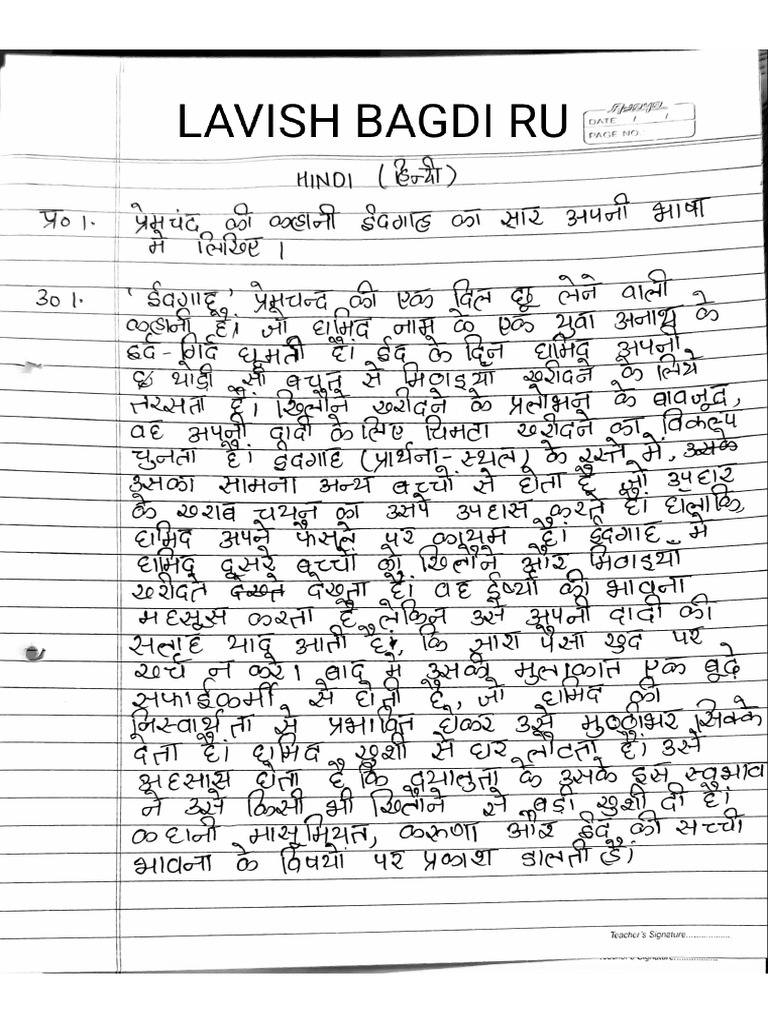 LAVISH BAGDI RU
DATE / /
PAGE NO.
HINDI (हिन्दी)
प्र० 1. प्रेमचंद की कहानी ईदगाह का सार अपनी भाषा
में लिखिए।
उ० 1. 'ईदगाह' प्रेमचन्द की एक दिल छू लेने वाली
कहानी है। जो हामिद नाम के एक युवा अनाथ के
इर्द-गिर्द घूमती है। ईद के दिन हामिद अपनी
छु थोड़ी सी बचत से मिठाइयाँ खरीदने के लिये
तरसता है। खिलौने खरीदने के प्रलोभन के बावजूद,
वह अपनी दादी के लिए चिमटा खरीदने का विकल्प
चुनता है। ईदगाह (प्रार्थना-स्थल) के रस्ते में, उसके
उसका सामना अन्य बच्चों से होता है जो उपहार
के खराब चयन का उसपे उपहास करते है। हालाकि,
हामिद अपने फैसले पर कायम है। ईदगाह में
हामिद दूसरे बच्चों को खिलौने और मिठाइयाँ
खरीदते देखते देखता है। वह ईर्ष्या की भावना
महसूस करता है लेकिन उसे अपनी दादी की
सलाह याद आती है, कि सारा पैसा खुद पर
खर्च न करे। बाद में उसकी मुलाकात एक बूढे
सफाईकर्मी से होती है, जो हामिद की
निस्वार्थता से प्रभावित होकर उसे मुठ्ठीभर सिक्के
देता है। हामिद खुशी से घर लौटता है। उसे
अहसास होता है कि दयालुता के उसके इस स्वभाव
ने उसे किसी भी खिलौने से बड़ी खुशी दी है।
कहानी मासूमियत, करुणा और ईद की सच्ची
भावना के विषयों पर प्रकाश डालती है।
Teacher's Signature
Teacher's Signature